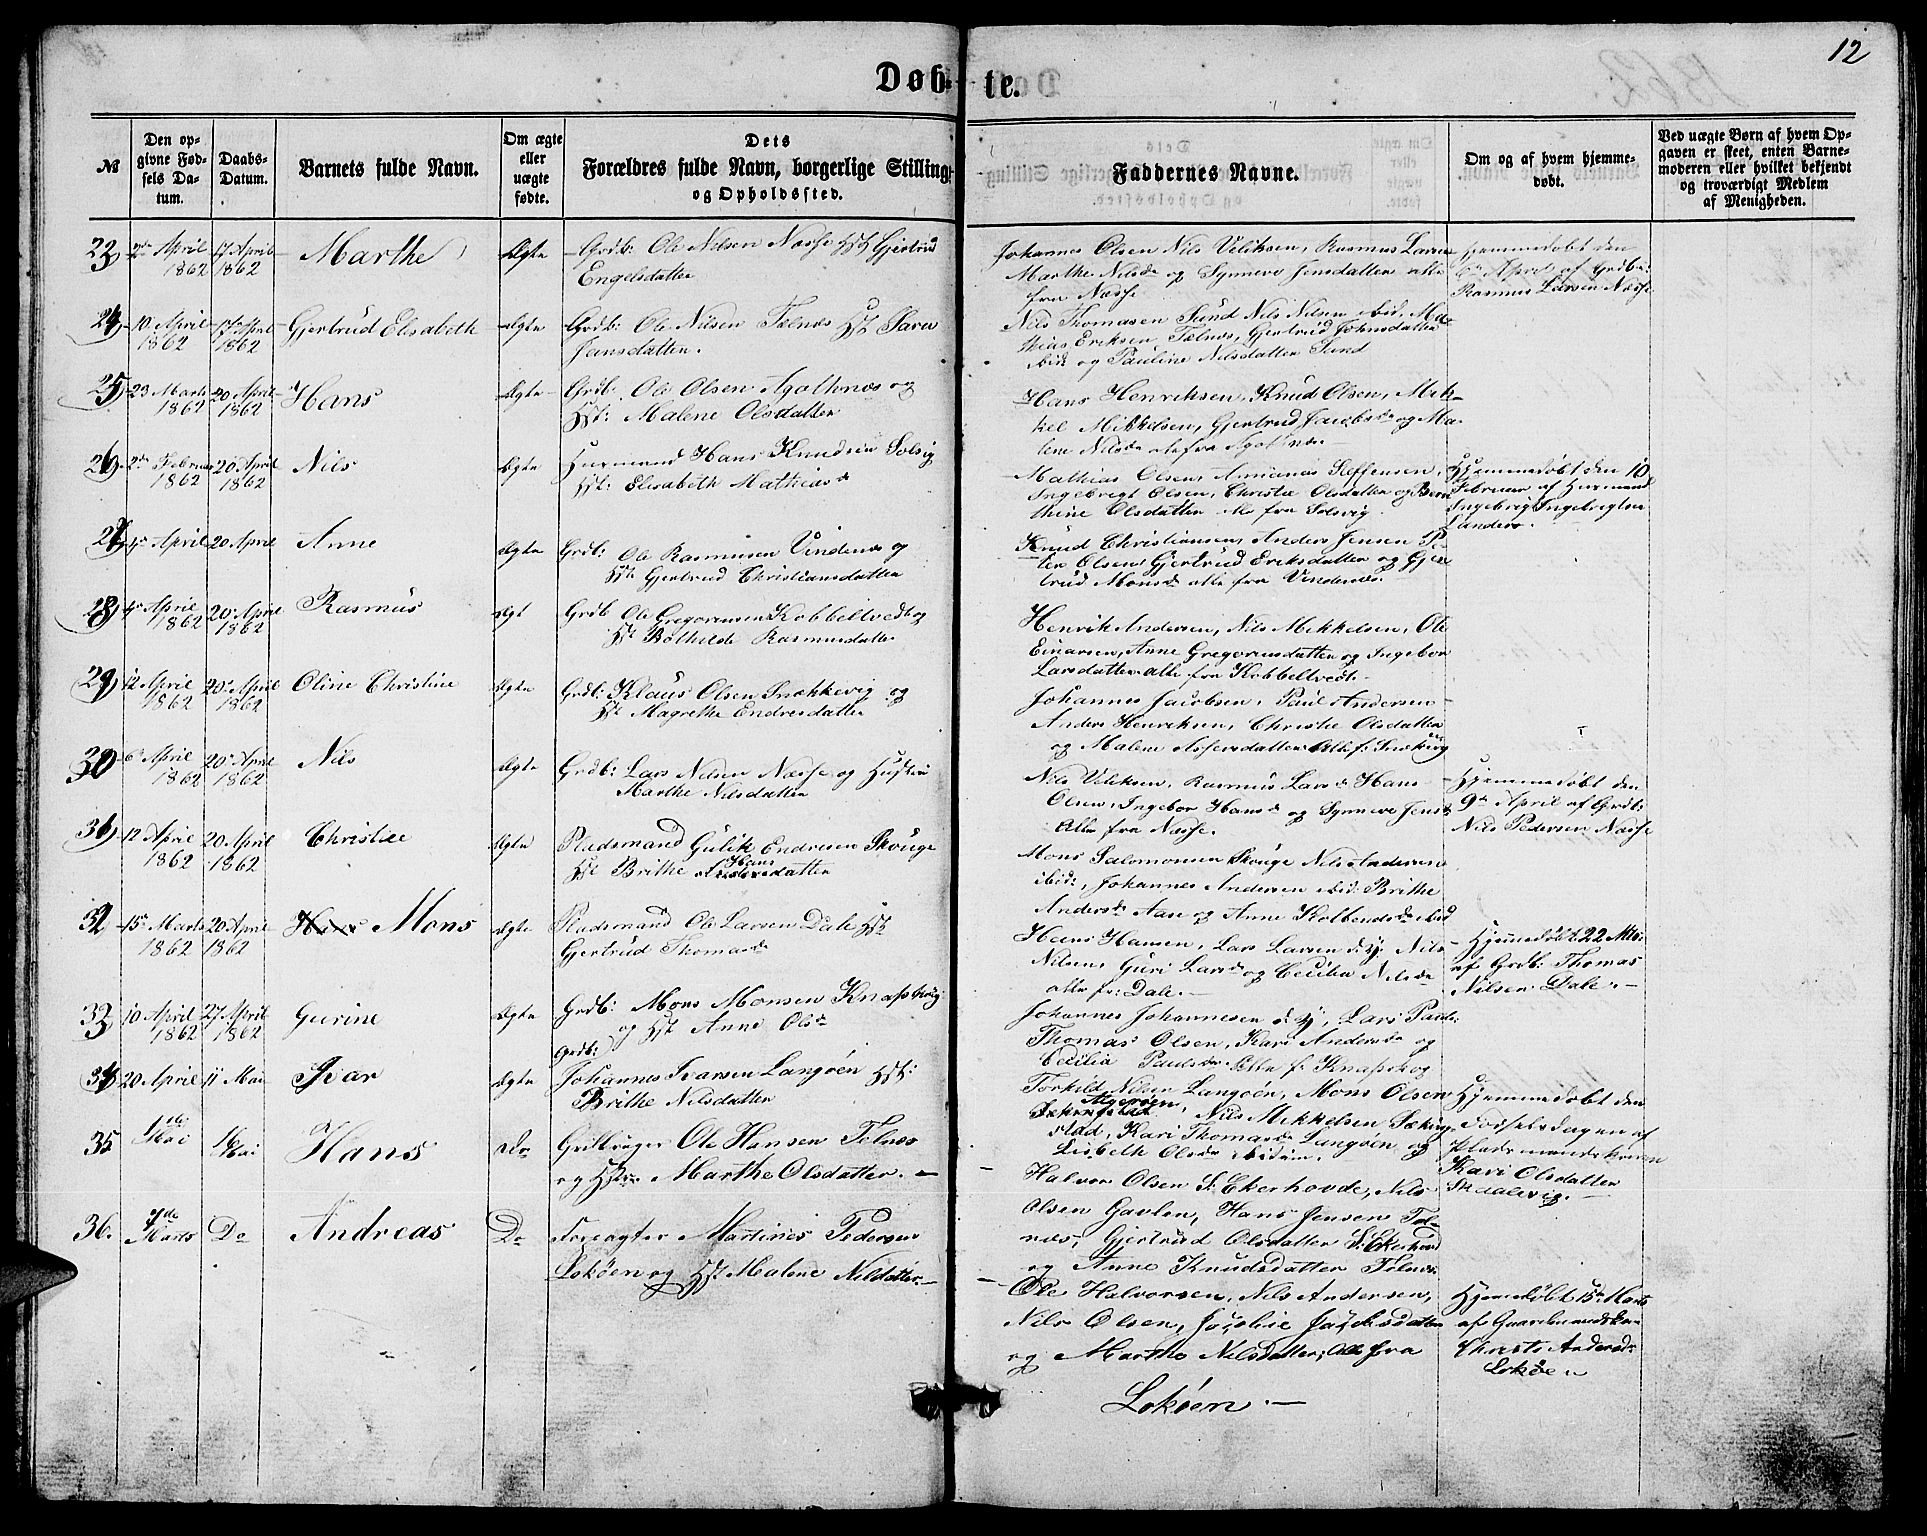 12
Døb- te.
№
Den op-
givne Fød-
sels Da-
tum.
Daabs-
Datum.
Barnets fulde Navn.
Om ægte
eller
uægte
fødte.
Dets
Forældres fulde Navn, borgerlige Stilling
og Opholdssted.
Faddernes Navne.
Om og af hvem hjemme-
døbt.
Ved uægte Børn af hvem Op-
gaven er skeet, enten Barne-
moderen eller hvilket bekjendt
og troværdigt Medlem
af Menigheden.
23 2de April 17 April Marthe Ægte Grdb: Ole Nilsen Næsse Hst Gjertrud
1862 1862 Engelsdatter
Johannes Olsen Nils Villiksen, Rasmus Larsen
Marthe Nilsdr og Synneve Jensdatter alle
fra Næsse
Hjemmedøbt den
April af Grdbr:
Rasmus Larsen Næsse
24 10 April 17 April Gjertrud Elisabeth Ægte Grdb: Ole Nilsen Telnes Hst Sara
1862 1862 Jensdatter.
Nils Thomasen Sund Nils Nilsen ibid, Ma-
thias Eriksen Telnes, Gjertrud Johnsdatter
ibid og Pauline Nilsdatter Sund
25 23 Marts 20 April Hans Ægte Grdb: Ole Olsen Agothnes og
1862 1862 Hst: Malene Olsdatter
Hans Henriksen, Knud Olsen, Mik-
kel Mikkelsen, Gjertrud Jacobsdr og Ma-
lene Nilsdr alle fra
26 2de Februar 20 April Nils Ægte Huusmand Hans Knudsen Solsvig
1862 1862 Hst: Elisabeth Mathiasdr
Mathias Olsen, Annanias Steffensen
Ingebrigt Olsen, Christie Olsdatter og Bern
thine Olsdatter alle fra Solsvig.
Hjemmedøbt den 10
Februar af Huusmand
Ingebrigt Ingebrigtsen
27 4de April 20 April Anne Ægte Grdb: Ole Rasmusen Vindenes og
Hst Gjertrud Christiansdatter
Knud Christiansen, Anders Jensen Pe-
ter Olsen, Gjertrud Eriksdatter og Gjer
trud Monsdr alle fra Vindenes.
28 4de April 20 April Rasmus Ægt Grdb Ole Gregoriusen Kobbeltvedt og
1862 1862 Hst Bothilde Rasmusdatter
Henrik Andersen, Nils Mikkelsen, Ole
Einarsen, Anne Gregoriusdatter og Ingebor
Larsdatter alle fra Kobbeltvedt.
29 12 April 20 April Oline Christine Ægte Grdb: Klaus Olsen Snækkevig og
1862 1862 Hst Magrethe Endresdatter
Johannes Jacobsen, Paul Andersen
Anders Henriksen, Christie Olsdatter
og Malene Assersdatter
30 6te April 20 April Nils Ægte Grdb: Lars Nilsen Næsse og Hustru
1862 1862 Marthe Nilsdatter
Nils Villiksen, Rasmus Lars Hans
Olsen, Ingebor Hansdr og Synneve Jensdr
Alle fra Næsse.
Hjemmedøbt den
9de April af Grdb:
Nils Pedersen Næsse
31 12 April 20 April Christie Ægte Pladsmand Gulik Endresen Skouge
1862 1862 Hst Brithe Hansdatter
Mons Salomonsen Skouge Nils Andersen
ibid:, Johannes Andersen ibid: Brithe
Andersdr Aase og Anne Kolbensdr ibid
32 15de Marts 20 April Mons Ægte Pladsmand Ole Larsen Dale Hst
1862 1862 Gjertrud Thomasdr
Hans Hansen, Lars Larsen d. y. Nils
Nilsen, Guri Larsdr og Cecilia Nilsdr
alle fr: Dale.
Hjemmedøbt 22 Mts:
af Grdb: Thomas
Nilsen Dale.
33 10 April 27 April Gurine Ægte Grdb: Mons Monsen Knapskog
1862 1862 og Hst Anne Olsdr
Johannes Johannesen d. y, Lars Pauls:
Thomas Olsen, Kari Andersdr og
Cecilia Paulsdr Alle f: Knapskog
34 20 April 11 Mai Ivar Ægte Grdb:
Johannes Ivarsen Langøen Hst:
Brithe Nilsdatter
Torkild Nilsen Langøen, Mons Olsen
Algerøen, Nils Mikkelsen Sæking-
stad, Kari Thomasdr Langøen og
Lisbeth Olsdr ibidem.
Hjemmedøbt den
Fødselsdagen af
Pladsmandskonen
Kari Olsdatter
35 1ste Mai Mai Hans Do Grdbruger Ole Hansen Telnes
og Hstr Marthe Olsdatter.
Halvor Olsen S: Ekerhovde, Nils
Olsen Gavlen, Hans Jensen Tel-
nes, Gjertrud Olsdatter S: Ekerhovd
og Anne Knudsdatter Telnes.
36. 7de Marts Do Andreas Do Foreagter Martines Pedersen
Lokøen og Hst Malene Nilsdatter.
Ole Halvorsen, Nils Andersen,
Nils Olsen, Jacobie Jacobsdatter
og Marthe Nilsdatter, Alle fra
Lokøen.
Hjemmedøbt 15de Marts
af Gaardmandskone
Christi Andersdr
Lokøen